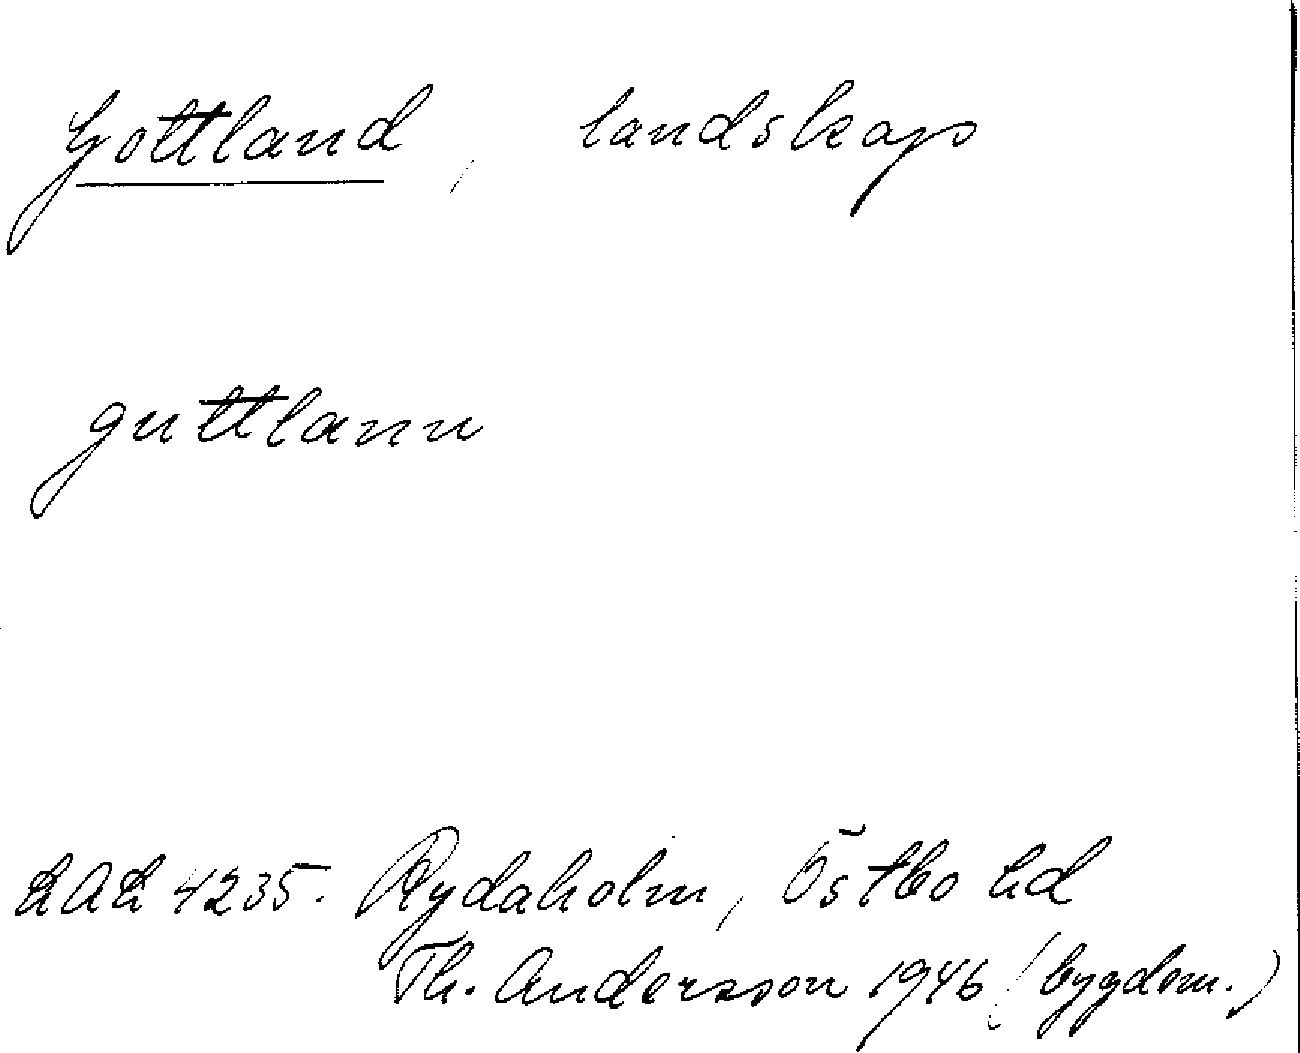 Gottland, landskap
guttlann
LAL 4235. Rydaholm, Östbo hd
Th. Andersson 1946 (bygdem.)